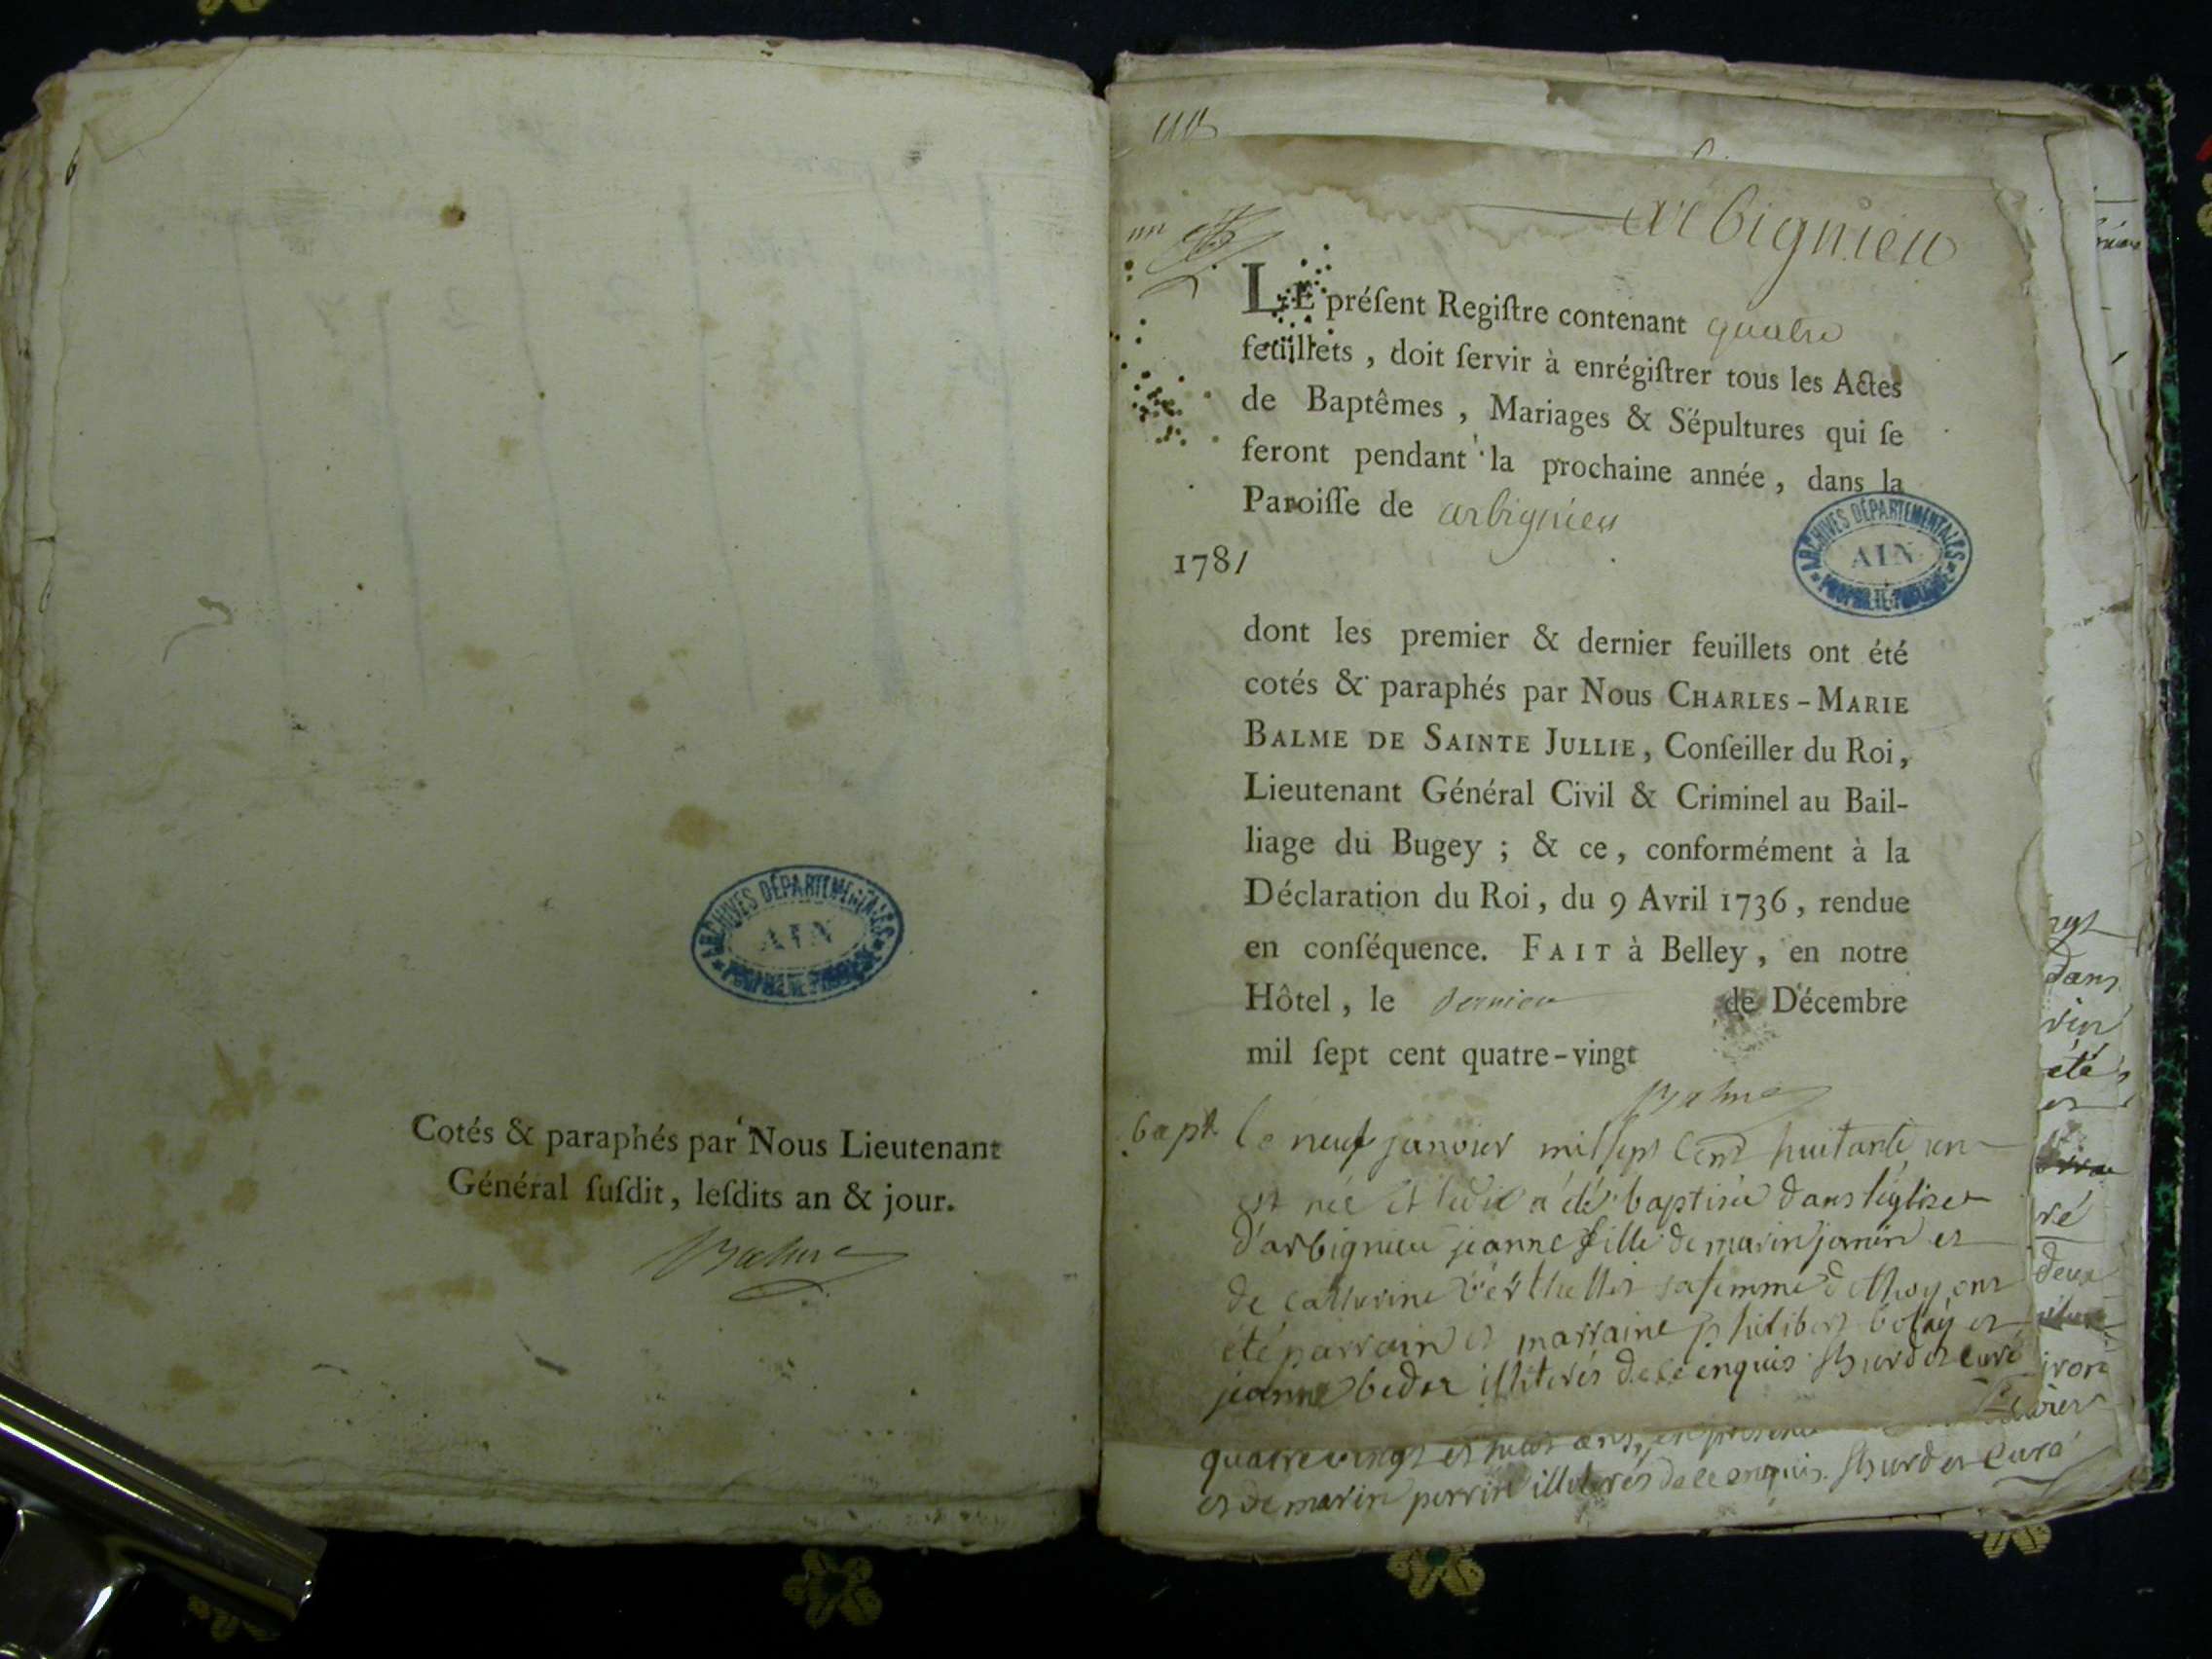 ARCHIVES DÉPARTEMENTALES
AIN
PROPRIÉTÉ PUBLIQUE
Cotés & paraphés par Nous Lieutenant
Général ſuſdit, leſdits an & jour.
Balme
un
arbignieu
LE préſent Regiſtre contenant quatre
feuillets, doit ſervir à enrégiſtrer tous les Actes
de Baptêmes, Mariages & Sépultures qui ſe
feront pendant la prochaine année, dans la
Paroiſſe de arbignieu
1781
ARCHIVES DÉPARTEMENTALES
AIN
PROPRIÉTÉ PUBLIQUE
dont les premier & dernier feuillets ont été
cotés & paraphés par Nous CHARLES-MARIE
BALME DE SAINTE JULLIE, Conſeiller du Roi,
Lieutenant Général Civil & Criminel au Bail-
liage du Bugey ; & ce, conformément à la
Déclaration du Roi, du 9 Avril 1736, rendue
en conſéquence. FAIT à Belley, en notre
Hôtel, le dernier de Décembre
mil ſept cent quatre-vingt
Balme
bapt. le neuf janvier mil sept cent huitante un
est née et a été baptisée dans l'église
d'arbignieu jeanne fille de marin janin et
de catherine sa femme ont
été parrain et marraine philibert et
jeanne illiterés de ce enquis curé
quatre vingt et ans, en
et de marin perrin illiterés de ce enquis curé
dans
été
ré
deux